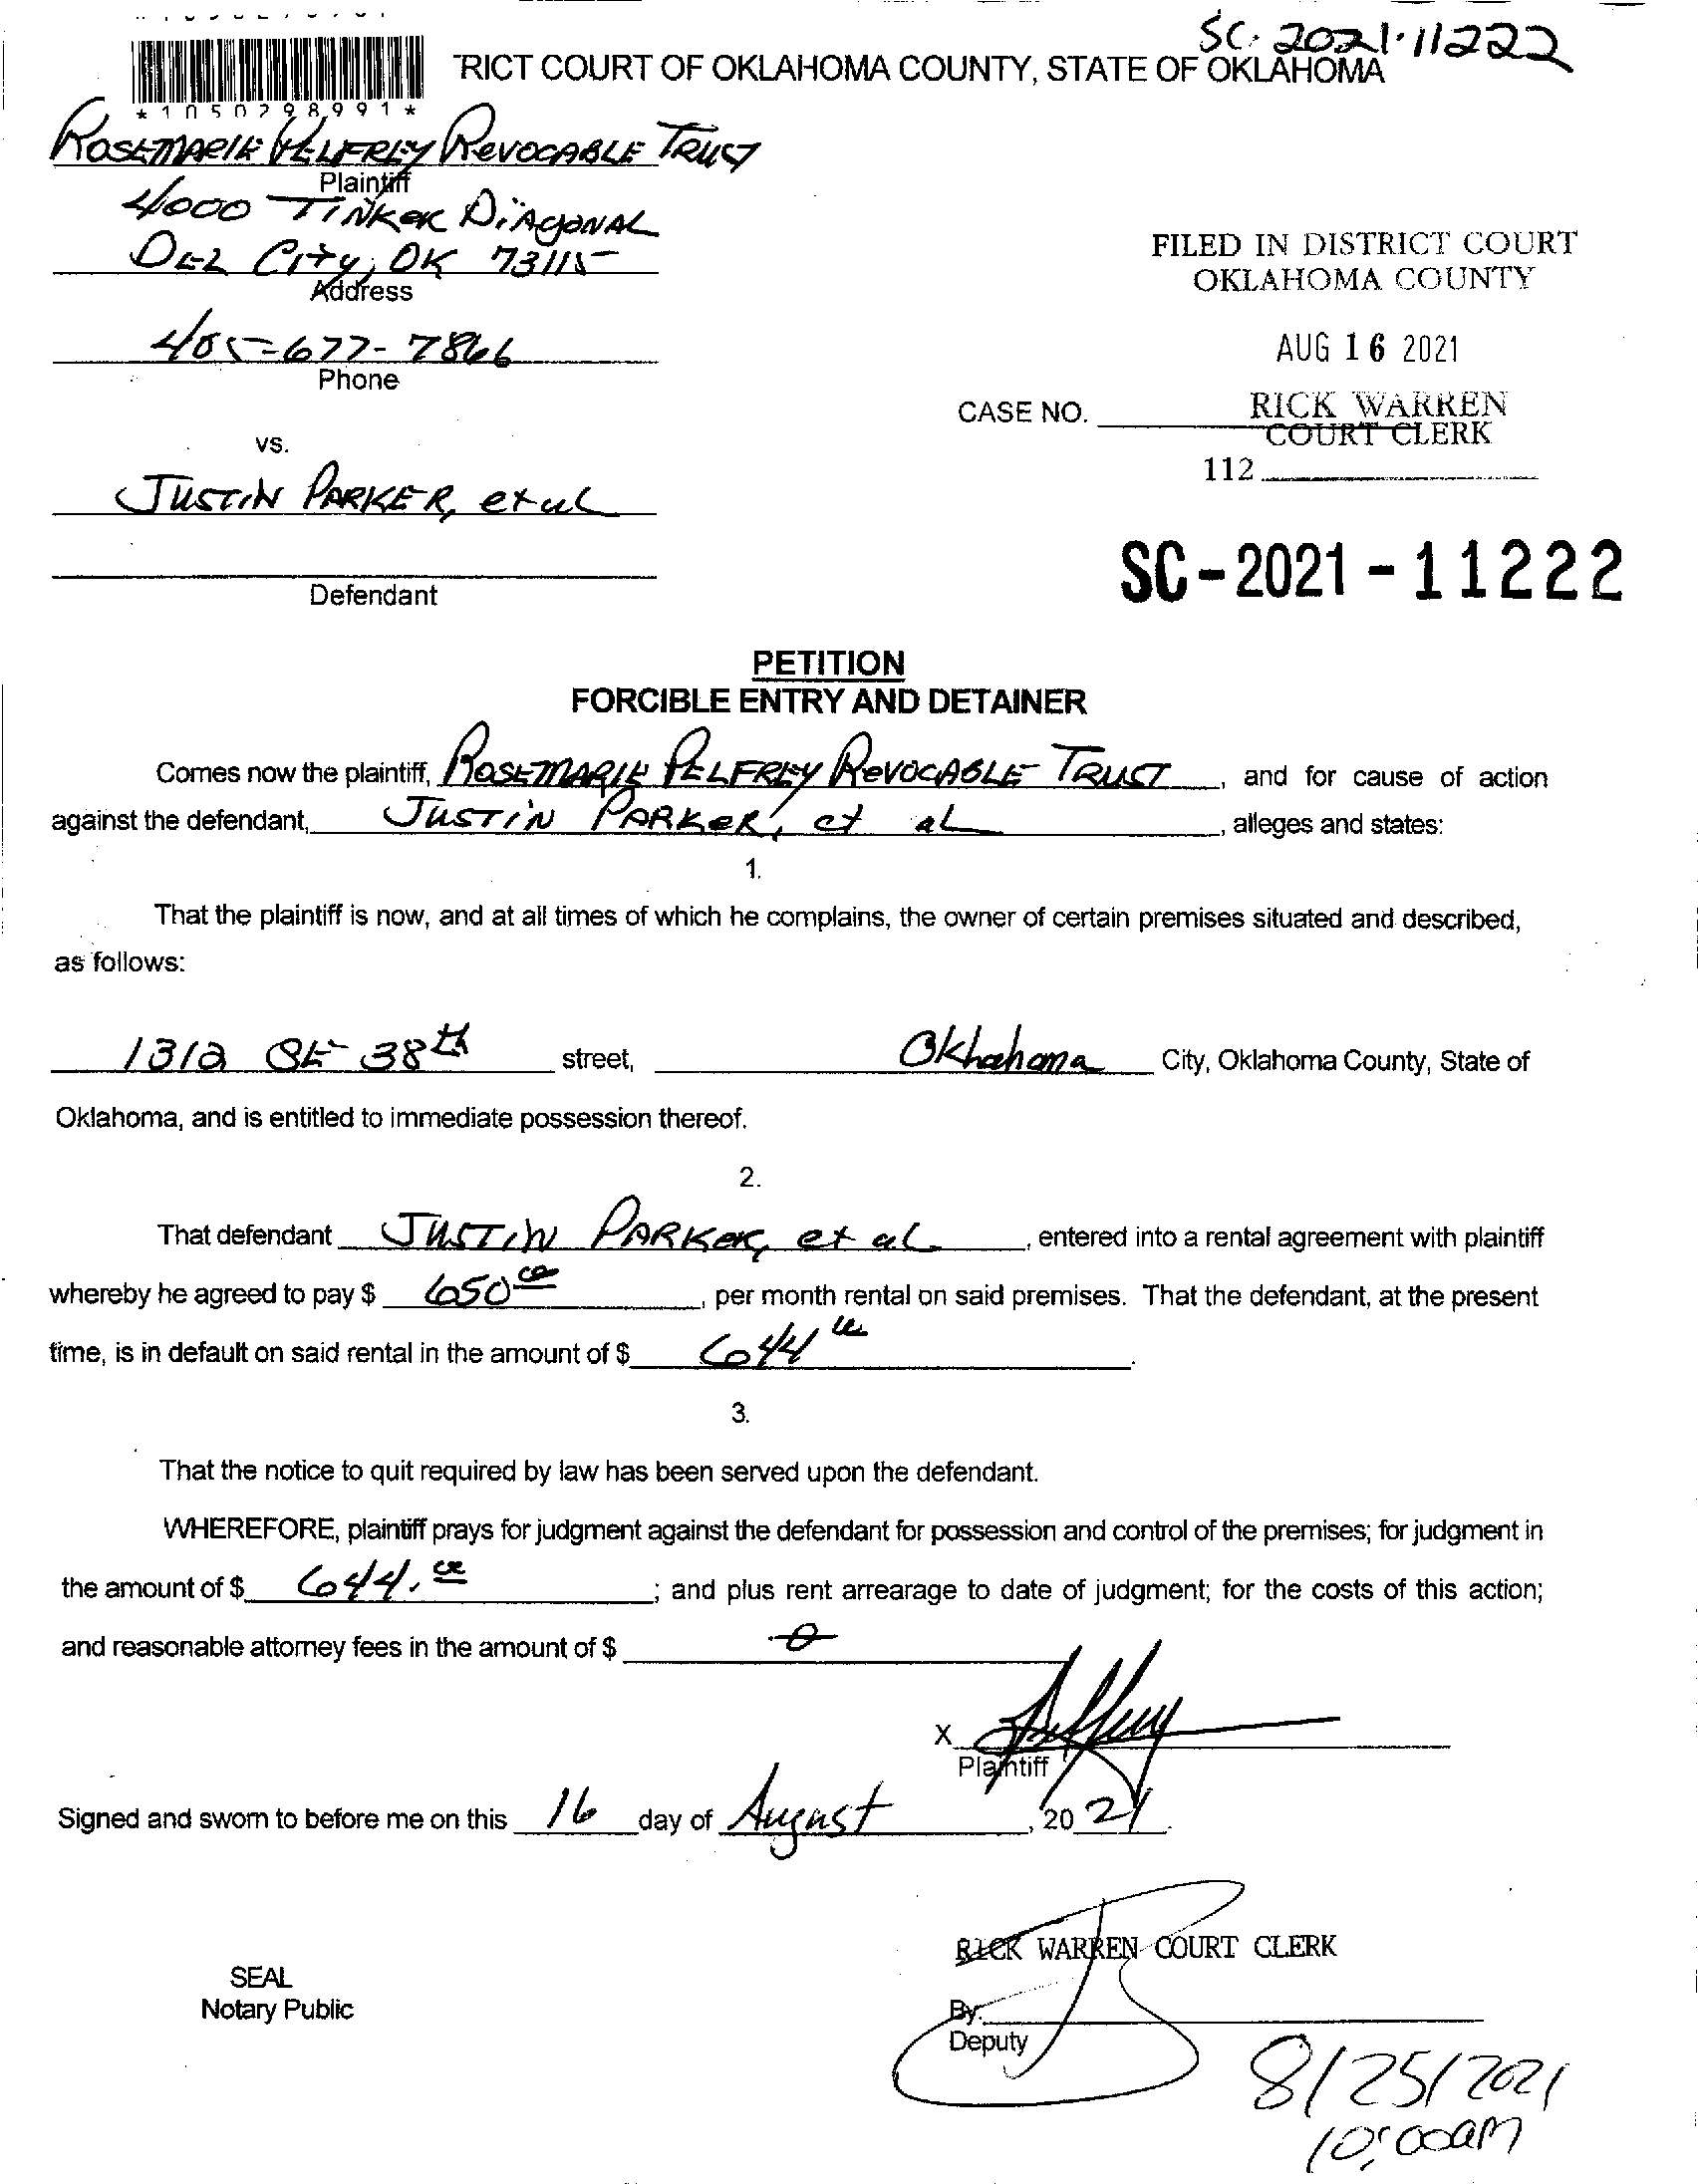 SC-2021-11222
TRICT COURT OF OKLAHOMA COUNTY, STATE OF OKLAHOMA
*1050298991*
ROSEMARIE PELFREY REVOCABLE TRUST
Plaintiff
4000 TINKER DIAGONAL
DEL CITY, OK 73115
Address
405-677-7866
Phone
FILED IN DISTRICT COURT
OKLAHOMA COUNTY
AUG 16 2021
RICK WARREN
COURT CLERK
CASE NO.
112
vs.
JUSTIN PARKER, et al
Defendant
SC-2021-11222
PETITION
FORCIBLE ENTRY AND DETAINER
Comes now the plaintiff, ROSEMARIE PELFREY REVOCABLE TRUST, and for cause of action
against the defendant, JUSTIN PARKER, et al, alleges and states:
1.
That the plaintiff is now, and at all times of which he complains, the owner of certain premises situated and described,
as follows:
1312 SE 38th street, Oklahoma City, Oklahoma County, State of
Oklahoma, and is entitled to immediate possession thereof.
2.
That defendant JUSTIN PARKER, et al, entered into a rental agreement with plaintiff
whereby he agreed to pay $ 650 00, per month rental on said premises. That the defendant, at the present
time, is in default on said rental in the amount of $ 644 00.
3.
That the notice to quit required by law has been served upon the defendant.
WHEREFORE, plaintiff prays for judgment against the defendant for possession and control of the premises; for judgment in
the amount of $ 644.00; and plus rent arrearage to date of judgment; for the costs of this action;
and reasonable attorney fees in the amount of $ 0
X
Plaintiff
Signed and sworn to before me on this 16 day of August, 20 21.
RICK WARREN COURT CLERK
SEAL
Notary Public
By:
Deputy
8/25/2021
10:00am